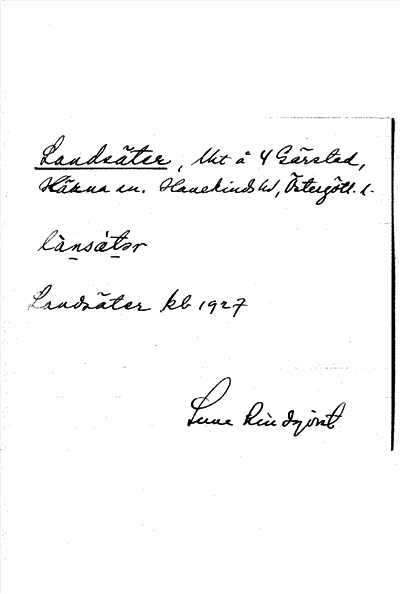 Landsäter, lht å Y Gärstad,
Häkna sn. Hanekinds hd, Östergötl. l.
lànsát
Landsäter kb 1927
Sune Lindqvist